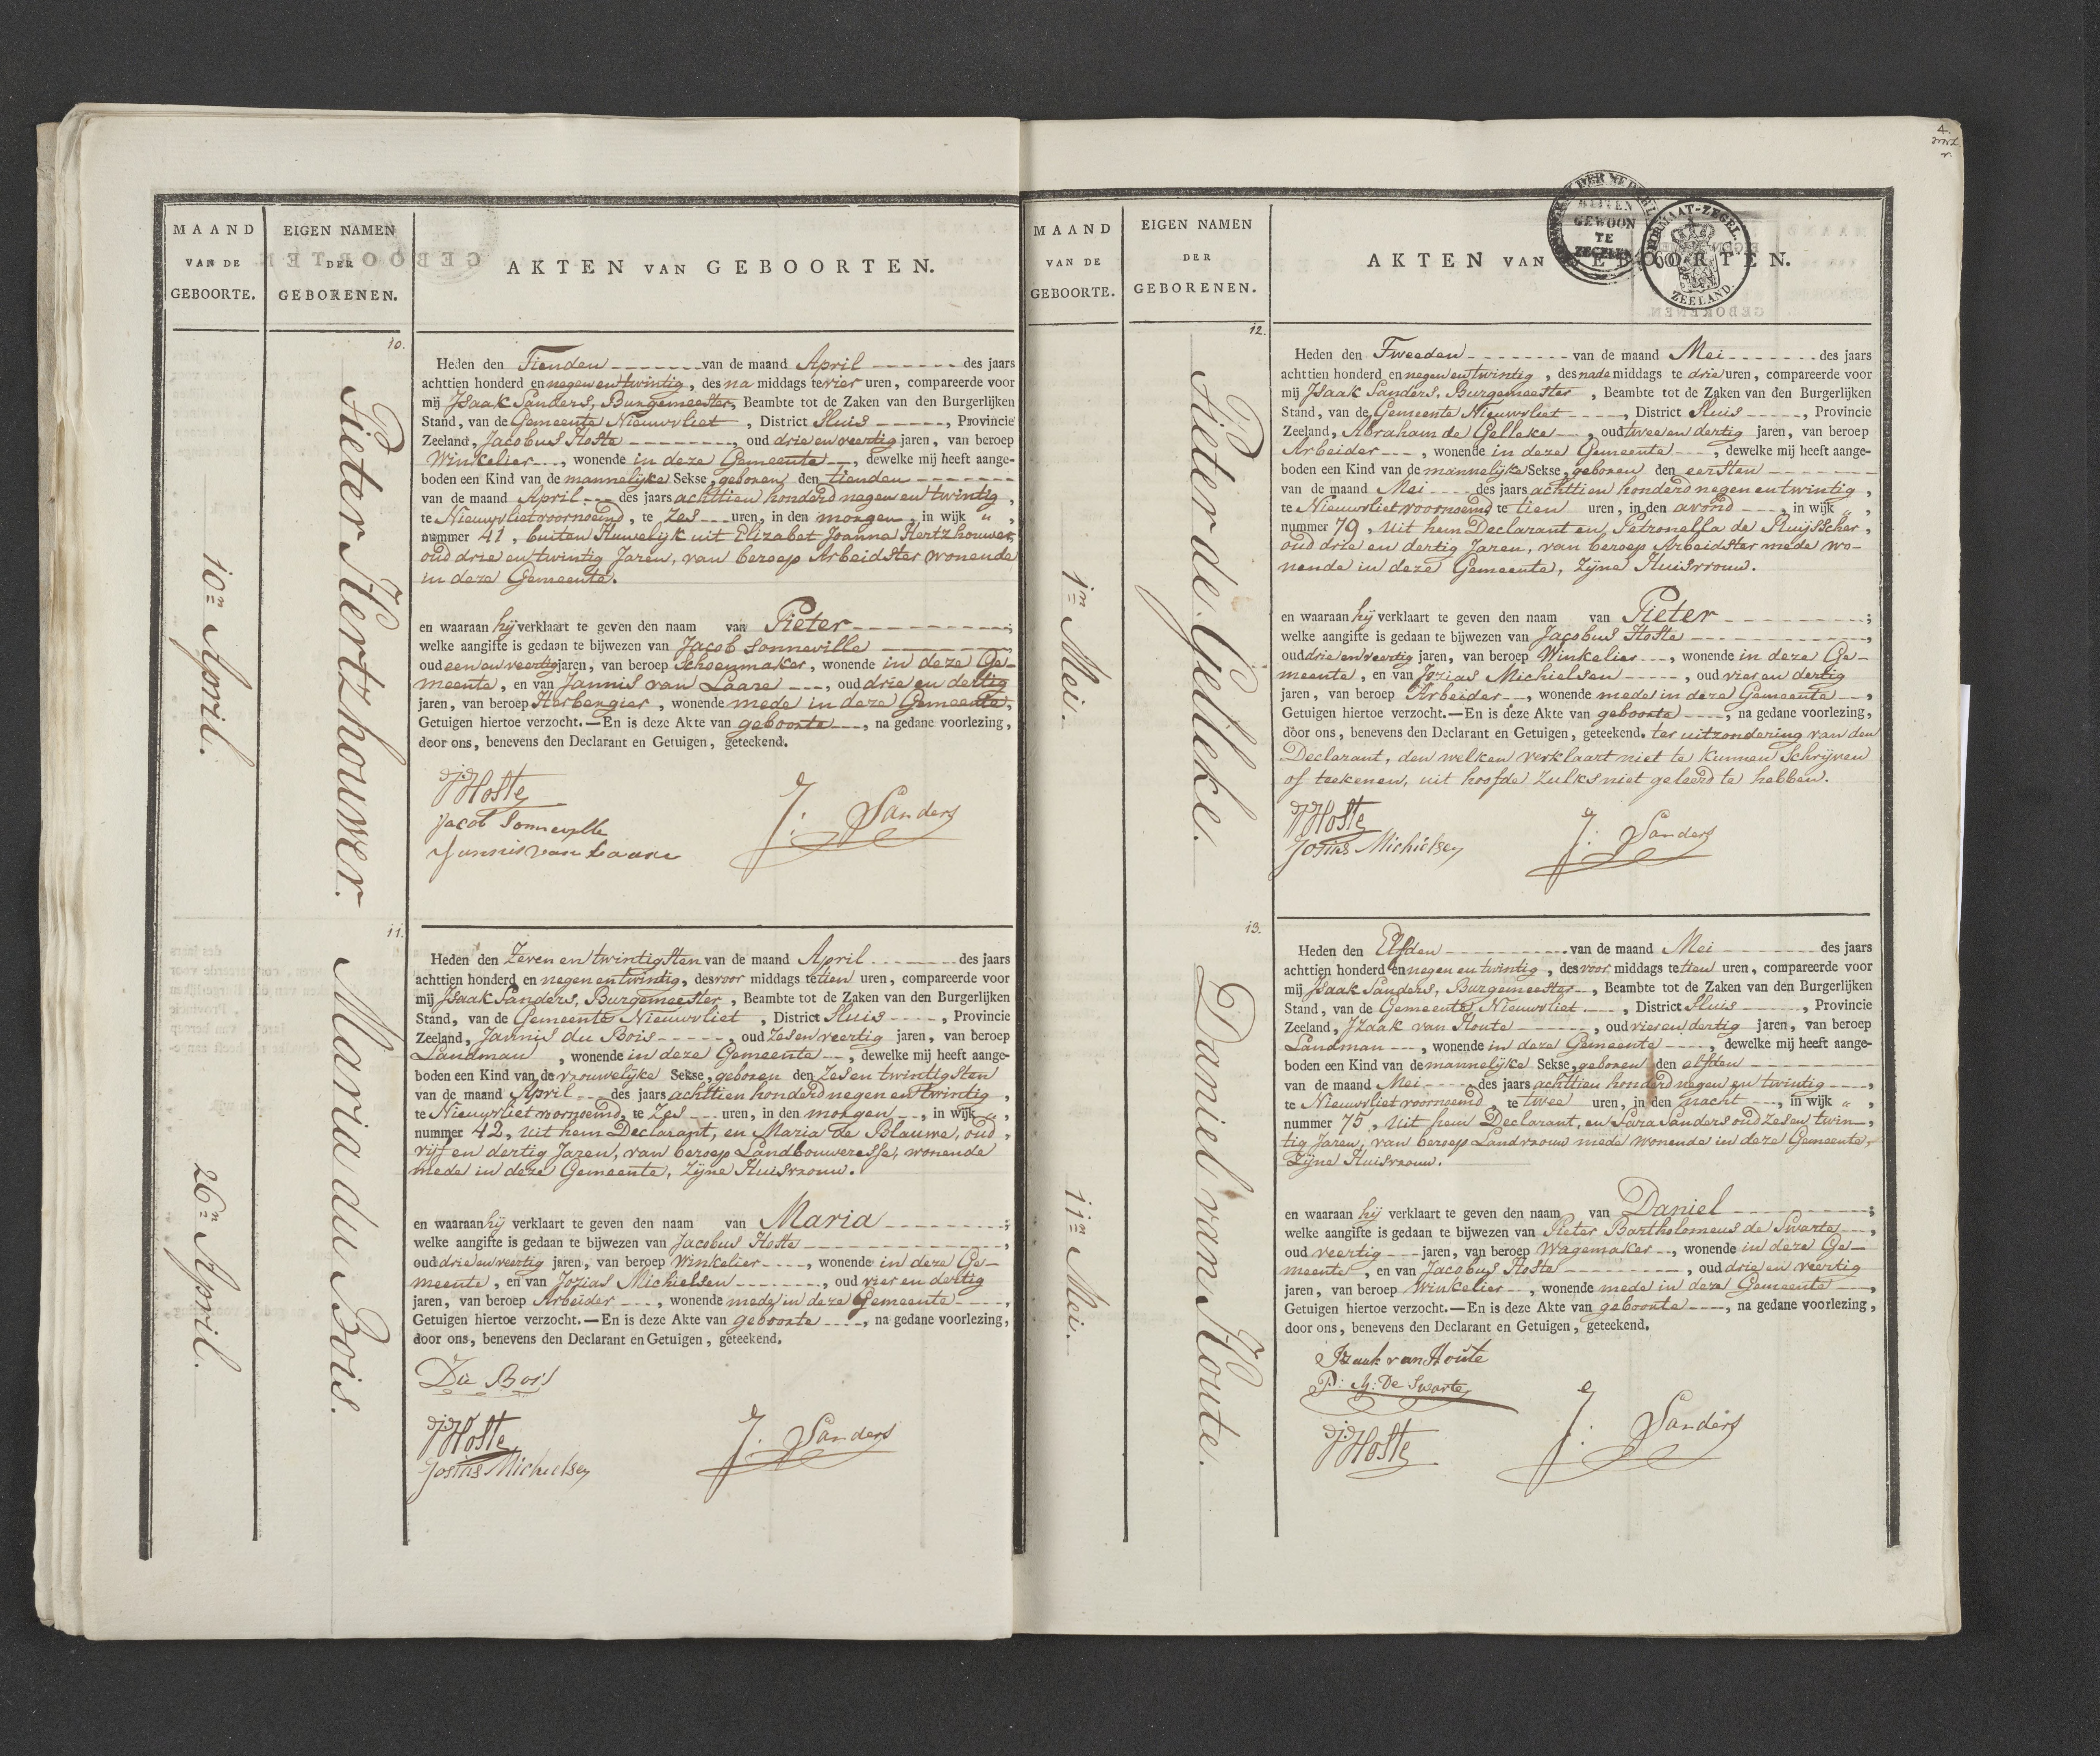 MAAND
VAN DE
GEBOORTE.
EIGEN NAMEN
DER
GEBORENEN.
AKTEN VAN GEBOORTEN.
10.
10n April.
Pieter Hertzhouwer.
Heden den Tienden van de maand April des jaars
achttien honderd en negen en twintig, des na middags te vier uren, compareerde voor
mij Isaak Sanders, Burgemeester, Beambte tot de Zaken van den Burgerlijken
Stand, van de Gemeente Nieuwvliet, District Sluis, Provincie
Zeeland, Jacobus Hoste, oud drie en veertig jaren, van beroep
Winkelier, wonende in deze Gemeente, dewelke mij heeft aange-
boden een Kind van de mannelijke Sekse, geboren den tienden
van de maand April des jaars achttien honderd negen en twintig,
te Nieuwvliet voornoemd, te zes uren, in den morgen, in wijk „ ,
nummer 41, buiten Huwelijk uit Elizabet Joanna Hertzhouwer,
oud drie en twintig Jaren, van beroep Arbeidster wonende
in deze Gemeente.
en waaraan hij verklaart te geven den naam van Pieter;
welke aangifte is gedaan te bijwezen van Jacob Sonneville
oud een en veertig jaren, van beroep Schoenmaker, wonende in deze Ge-
meente, en van Jannis van Laare, oud drie en dertig
jaren, van beroep Herbergier, wonende mede in deze Gemeente,
Getuigen hiertoe verzocht.—En is deze Akte van geboorte, na gedane voorlezing,
door ons, benevens den Declarant en Getuigen, geteekend.
JHoste
Jacob Sonneville
Jannis van Laare
J: Sanders
11.
26n April.
Maria du Bois.
Heden den Zeven en twintigsten van de maand April des jaars
achttien honderd en negen en twintig, des voor middags te tien uren, compareerde voor
mij Isaak Sanders, Burgemeester, Beambte tot de Zaken van den Burgerlijken
Stand, van de Gemeente Nieuwvliet, District Sluis, Provincie
Zeeland, Jannis du Bois, oud zes en veertig jaren, van beroep
Landman, wonende in deze Gemeente, dewelke mij heeft aange-
boden een Kind van de vrouwelijke Sekse, geboren den Zes en twintigsten
van de maand April des jaars achttien honderd negen en twintig,
te Nieuwvliet voornoemd, te Zes uren, in den morgen, in wijk „ ,
nummer 42, uit hem Declarant, en Maria de Blauwe, oud,
vijf en dertig Jaren, van beroep Landbouweresse, wonende
mede in deze Gemeente, Zijne Huisvrouw.
en waaraan hij verklaart te geven den naam van Maria;
welke aangifte is gedaan te bijwezen van Jacobus Hoste,
oud drie en veertig jaren, van beroep Winkelier, wonende in deze Ge-
meente, en van Jozias Michielsen, oud vier en dertig
jaren, van beroep Arbeider, wonende mede in deze Gemeente,
Getuigen hiertoe verzocht.—En is deze Akte van geboorte, na gedane voorlezing,
door ons, benevens den Declarant en Getuigen, geteekend.
Du Bois
JHoste
Josias Michielsen
J: Sanders
4.
MAAND
VAN DE
GEBOORTE.
EIGEN NAMEN
DER
GEBORENEN.
AKTEN VAN GEBOORTEN.
BUITEN
GEWOON
TE
ZEGELEN
ZEELAND.
12.
1n Mei.
Pieter de Gelleke.
Heden den Tweeden van de maand Mei des jaars
achttien honderd en negen en twintig, des nademiddags te drie uren, compareerde voor
mij Isaak Sanders, Burgemeester, Beambte tot de Zaken van den Burgerlijken
Stand, van de Gemeente Nieuwvliet, District Sluis, Provincie
Zeeland, Abraham de Gelleke, oud twee en dertig jaren, van beroep
Arbeider, wonende in deze Gemeente, dewelke mij heeft aange-
boden een Kind van de mannelijke Sekse, geboren den eersten
van de maand Mei des jaars achttien honderd negen en twintig,
te Nieuwvliet voornoemd, te tien uren, in den avond, in wijk „ ,
nummer 79, uit hem Declarant en, Petronella de Pluijsscher,
oud drie en dertig Jaren, van beroep Arbeidster mede wo-
nende in deze Gemeente, Zijne Huisvrouw.
en waaraan hij verklaart te geven den naam van Pieter;
welke aangifte is gedaan te bijwezen van Jacobus Hoste,
oud drie en veertig jaren, van beroep Winkelier, wonende in deze Ge-
meente, en van Jozias Michielsen, oud vier en dertig
jaren, van beroep Arbeider, wonende mede in deze Gemeente,
Getuigen hiertoe verzocht.—En is deze Akte van geboorte, na gedane voorlezing,
door ons, benevens den Declarant en Getuigen, geteekend. ter uitzondering van den
Declarant, den welken verklaart niet te kunnen schrijven
of teekenen, uit hoofde zulks niet geleerd te hebben.
JHoste
Josias Michielsen
J: Sanders
13.
11n Mei.
Daniel van Houte.
Heden den Elfden van de maand Mei des jaars
achttien honderd en negen en twintig, des voor middags te tien uren, compareerde voor
mij Isaak Sanders, Burgemeester, Beambte tot de Zaken van den Burgerlijken
Stand, van de Gemeente Nieuwvliet, District Sluis, Provincie
Zeeland, Izaak van Houte, oud vier en dertig jaren, van beroep
Landman, wonende in deze Gemeente, dewelke mij heeft aange-
boden een Kind van de mannelijke Sekse, geboren den elfden
van de maand Mei des jaars achttien honderd negen en twintig,
te Nieuwvliet voornoemd, te twee uren, in den nacht, in wijk „ ,
nummer 75, uit hem Declarant, en Sara Sanders oud zes en twin-
tig Jaren, van beroep Landvrouw mede wonende in deze Gemeente,
Zijne Huisvrouw.
en waaraan hij verklaart te geven den naam van Daniel;
welke aangifte is gedaan te bijwezen van Pieter Bartholomeus de Swarte,
oud veertig jaren, van beroep Wagemaker, wonende in deze Ge-
meente, en van Jacobus Hoste, oud drie en veertig
jaren, van beroep Winkelier, wonende mede in deze Gemeente,
Getuigen hiertoe verzocht.—En is deze Akte van geboorte, na gedane voorlezing,
door ons, benevens den Declarant en Getuigen, geteekend.
Izaak van Houte
P: B: De Swarte
JHoste
J: Sanders